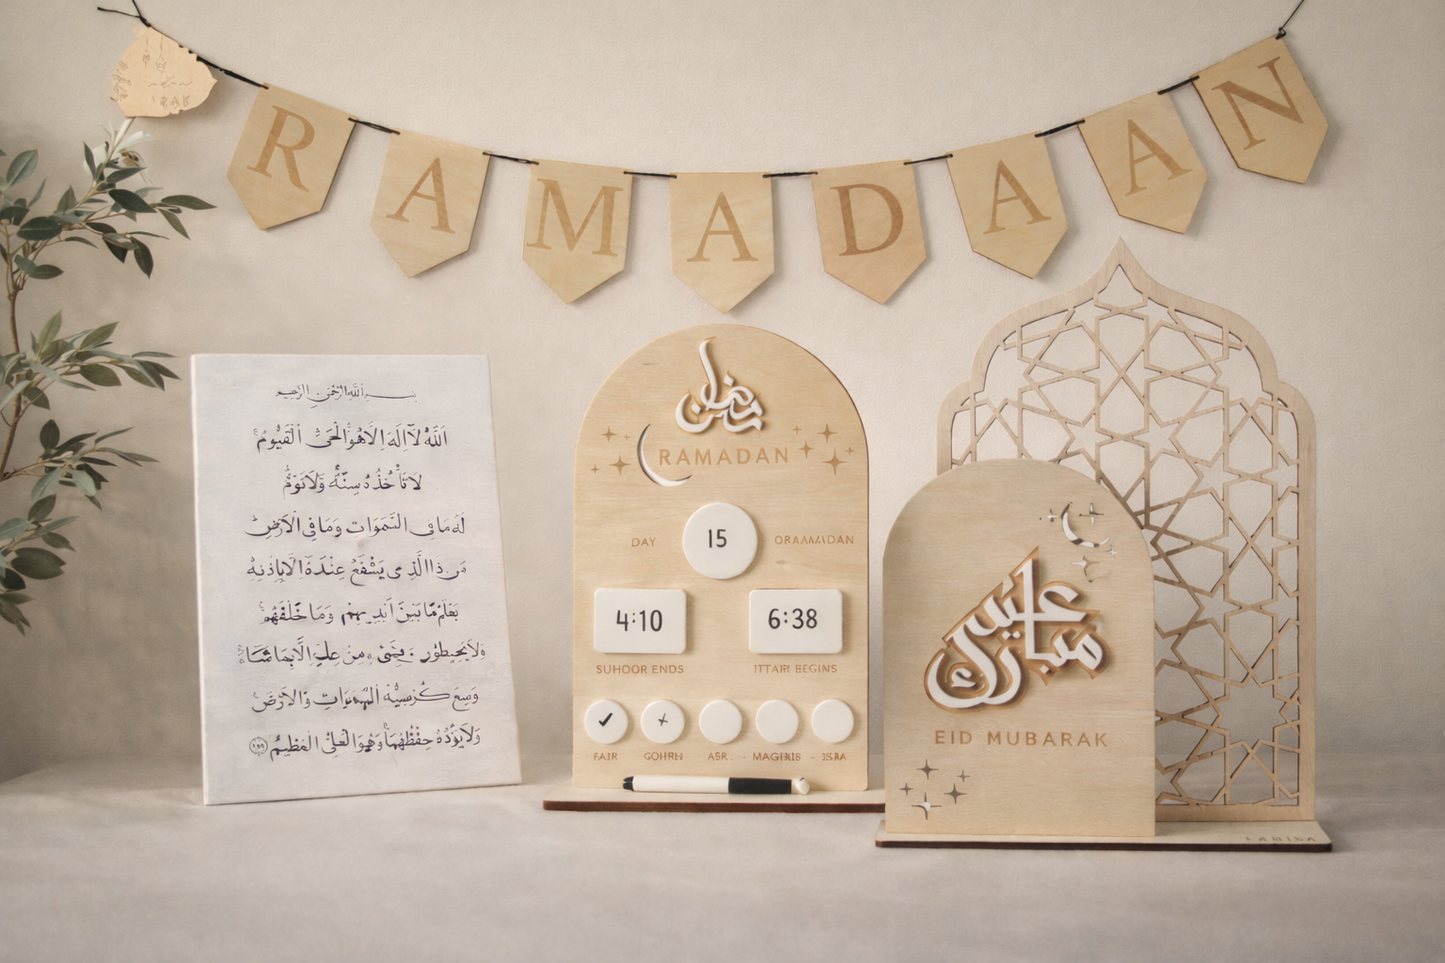 RAMADAAN
بسم الله الرحمن الرحيم
اَللّٰهُ لَآ اِلٰهَ اِلَّا هُوَ الْحَيُّ الْقَيُّومُ
لَا تَأْخُذُهُ سِنَةٌ وَّلَا نَوْمٌ
لَهُ مَا فِي السَّمٰوَاتِ وَمَا فِي الْاَرْضِ
مَن ذَا الَّذِي يَشْفَعُ عِنْدَهُ اِلَّا بِاِذْنِهِ
يَعْلَمُ مَا بَيْنَ اَيْدِيهِمْ وَمَا خَلْفَهُمْ
وَسِعَ كُرْسِيُّهُ السَّمٰوَاتِ وَالْاَرْضَ
وَلَا يَؤُدُهُ حِفْظُهُمَا وَهُوَ الْعَلِيُّ الْعَظِيمُ
رمضان
RAMADAN
DAY 15 ORAAMADAN
4:10 6:38
SUHOOR ENDS IFTAR BEGINS
FAJR GOHRH ASR MAGHRIB ISRA
عيد
مبارك
EID MUBARAK